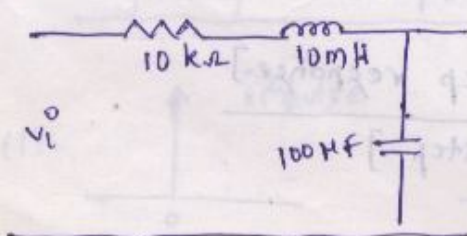 10 kΩ 10mH
Vi
100MF